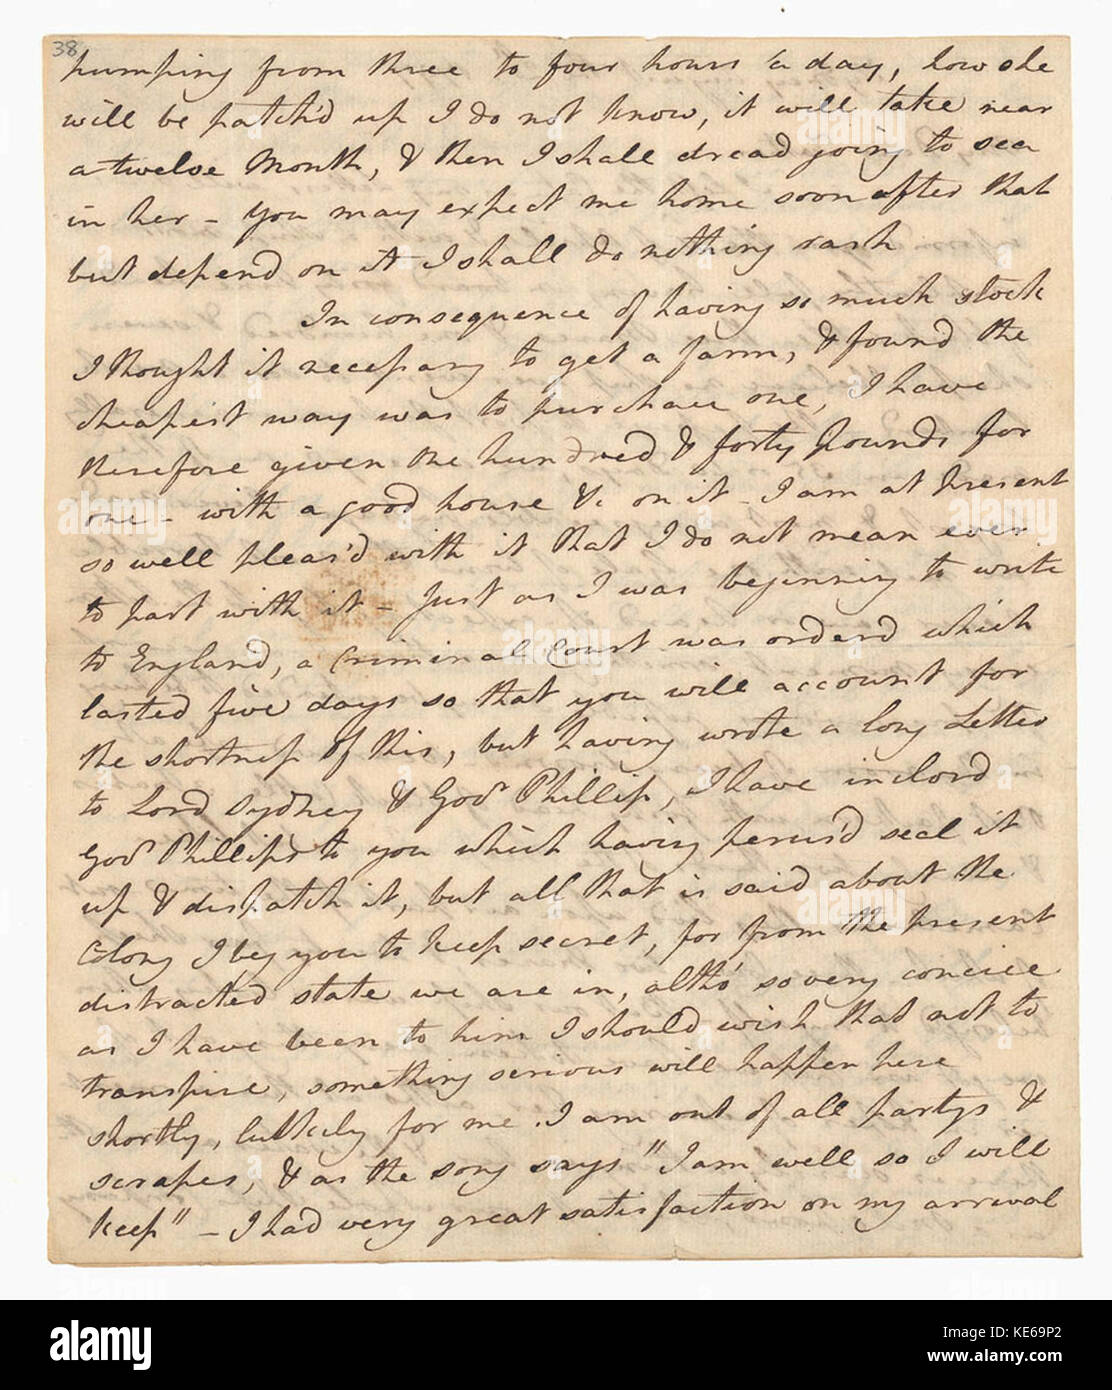 38
pumping from three to four hours a day, how she
will be patch'd up I do not know, it will take near
a twelve Month, & then I shall dread going to sea
in her - you may expect me home soon after that
but depend on it I shall do nothing rash
In consequence of having so much stock
I thought it necessary to get a farm, & found the
cheapest way was to purchase one, I have
therefore given the hundred & forty pounds for
one - with a good house &c on it - I am at present
so well pleas'd with it that I do not mean ever
to part with it - Just as I was beginning to write
to England, a Criminal Court was orderd which
lasted five days so that you will account for
the shortness of this, but having wrote a long Letter
to Lord Sydney & Govr Phillip, I have inclosd
Govr Phillips to you which having perus'd seal it
up & dispatch it, but all that is said about the
Colony I beg you to keep secret, for from the present
distracted state we are in, altho' so very concise
as I have been to him I should wish that not to
transpire, something serious will happen here
shortly, luckily for me I am out of all partys &
scrapes, & as the song says "I am well so I will
keep" - I had very great satisfaction on my arrival
alamy
Image ID: KE69P2
www.alamy.com